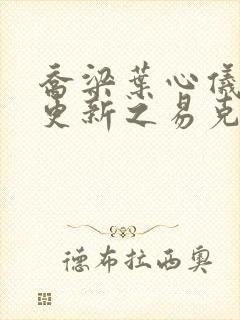 乔梁葉心儀
更新之易克
德布拉西奥